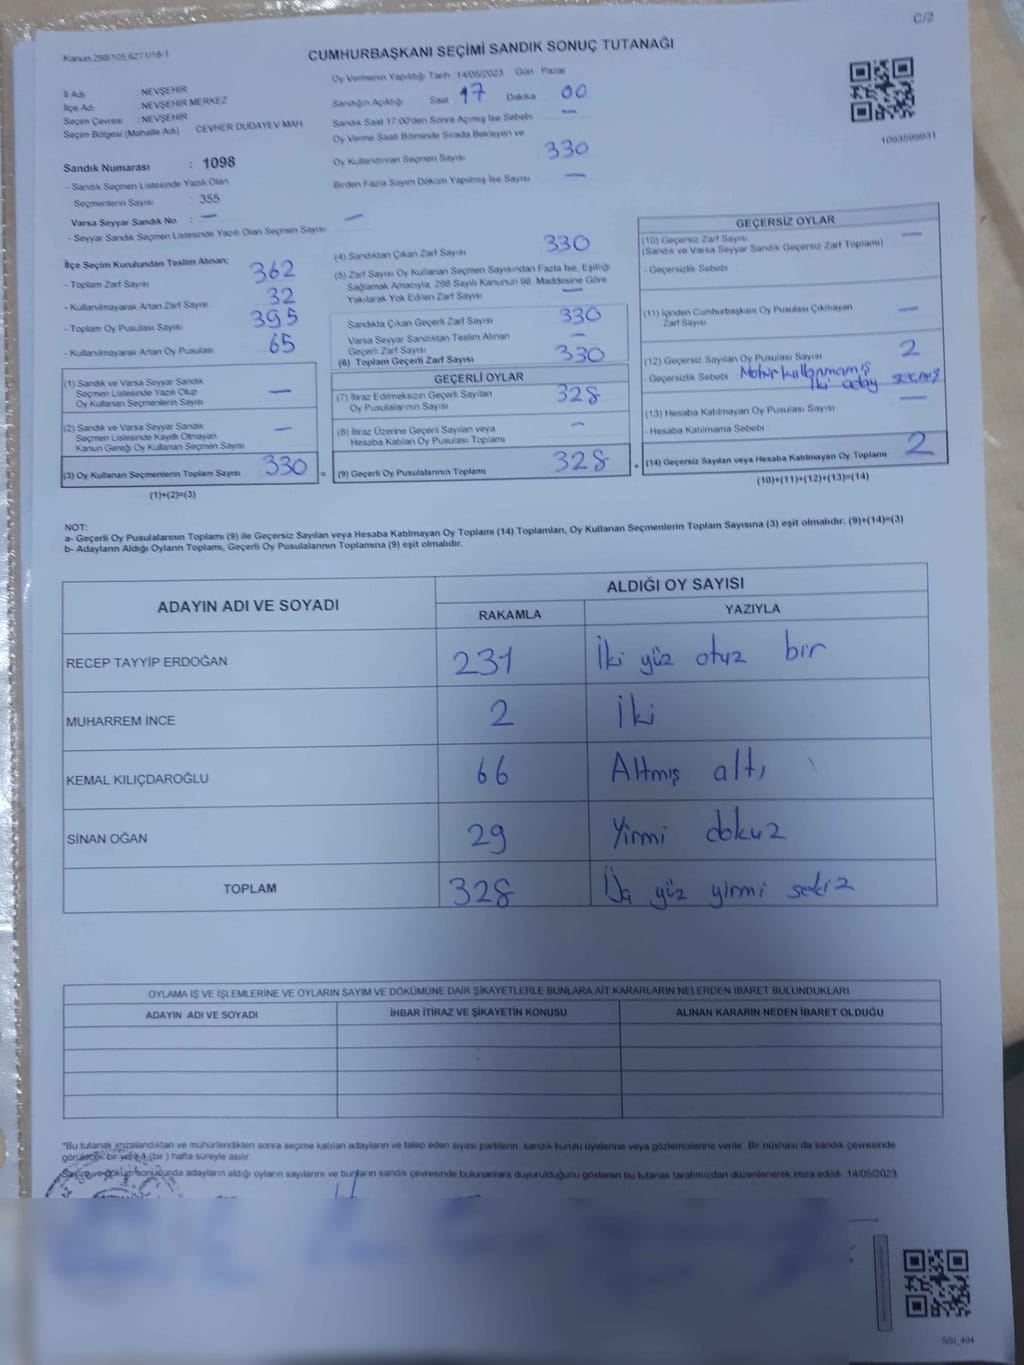 C/2
Kanun 298/105,6271/18-1
CUMHURBAŞKANI SEÇİMİ SANDIK SONUÇ TUTANAĞI
İl Adı NEVŞEHİR
İlçe Adı NEVŞEHİR MERKEZ
Seçim Çevresi :NEVŞEHİR
Seçim Bölgesi (Mahalle Adı) CEVHER DUDAYEV MAH
Sandık Numarası : 1098
- Sandık Seçmen Listesinde Yazılı Olan
Seçmenlerin Sayısı 355
Varsa Seyyar Sandık No : —
- Seyyar Sandık Seçmen Listesinde Yazılı Olan Seçmen Sayısı —
Oy Vermenin Yapıldığı Tarih : 14/05/2023 Gün : Pazar
Sandığın Açıldığı Saat 17 Dakika 00
Sandık Saat 17:00'den Sonra Açılmış İse Sebebi —
Oy Verme Saati Bitiminde Sırada Bekleyen ve
Oy Kullandırılan Seçmen Sayısı 330
Birden Fazla Sayım Döküm Yapılmış İse Sayısı —
1093599931
İlçe Seçim Kurulundan Teslim Alınan;
- Toplam Zarf Sayısı 362
- Kullanılmayarak Artan Zarf Sayısı 32
- Toplam Oy Pusulası Sayısı 395
- Kullanılmayarak Artan Oy Pusulası 65
(1) Sandık ve Varsa Seyyar Sandık
Seçmen Listesinde Yazılı Olup
Oy Kullanan Seçmenlerin Sayısı —
(2) Sandık ve Varsa Seyyar Sandık
Seçmen Listesinde Kayıtlı Olmayan
Kanun Gereği Oy Kullanan Seçmen Sayısı —
(3) Oy Kullanan Seçmenlerin Toplam Sayısı 330 =
(1)+(2)=(3)
(4) Sandıktan Çıkan Zarf Sayısı 330
(5) Zarf Sayısı Oy Kullanan Seçmen Sayısından Fazla İse, Eşitliği
Sağlamak Amacıyla, 298 Sayılı Kanunun 98. Maddesine Göre
Yakılarak Yok Edilen Zarf Sayısı —
Sandıkta Çıkan Geçerli Zarf Sayısı 330
Varsa Seyyar Sandıktan Teslim Alınan
Geçerli Zarf Sayısı —
(6) Toplam Geçerli Zarf Sayısı 330
GEÇERLİ OYLAR
(7) İtiraz Edilmeksizin Geçerli Sayılan
Oy Pusulalarının Sayısı 328
(8) İtiraz Üzerine Geçerli Sayılan veya
Hesaba Katılan Oy Pusulası Toplamı —
(9) Geçerli Oy Pusulalarının Toplamı 328 +
GEÇERSİZ OYLAR
(10) Geçersiz Zarf Sayısı —
(Sandık ve Varsa Seyyar Sandık Geçersiz Zarf Toplamı)
- Geçersizlik Sebebi :
(11) İçinden Cumhurbaşkanı Oy Pusulası Çıkmayan
Zarf Sayısı —
(12) Geçersiz Sayılan Oy Pusulası Sayısı 2
- Geçersizlik Sebebi : Mohür kullanmamış
İki aday seçmiş
(13) Hesaba Katılmayan Oy Pusulası Sayısı —
- Hesaba Katılmama Sebebi :
(14) Geçersiz Sayılan veya Hesaba Katılmayan Oy Toplamı 2
(10)+(11)+(12)+(13)=(14)
NOT:
a- Geçerli Oy Pusulalarının Toplamı (9) ile Geçersiz Sayılan veya Hesaba Katılmayan Oy Toplamı (14) Toplamları, Oy Kullanan Seçmenlerin Toplam Sayısına (3) eşit olmalıdır. (9)+(14)=(3)
b- Adayların Aldığı Oyların Toplamı, Geçerli Oy Pusulalarının Toplamına (9) eşit olmalıdır.
ADAYIN ADI VE SOYADI
ALDIĞI OY SAYISI
RAKAMLA YAZIYLA
RECEP TAYYİP ERDOĞAN 231 İki yüz otuz bir
MUHARREM İNCE 2 İki
KEMAL KILIÇDAROĞLU 66 Altmış altı
SİNAN OĞAN 29 Yirmi dokuz
TOPLAM 328 Üç yüz yirmi sekiz
OYLAMA İŞ VE İŞLEMLERİNE VE OYLARIN SAYIM VE DÖKÜMÜNE DAİR ŞİKAYETLERLE BUNLARA AİT KARARLARIN NELERDEN İBARET BULUNDUKLARI
ADAYIN ADI VE SOYADI İHBAR İTİRAZ VE ŞİKAYETİN KONUSU ALINAN KARARIN NEDEN İBARET OLDUĞU
*Bu tutanak imzalandıktan ve mühürlendikten sonra seçime katılan adayların ve talep eden siyasi partilerin sandık kurulu üyelerine veya gözlemcilerine verilir. Bir nüshası da sandık çevresinde
görülecek bir yere 1 (bir ) hafta süreyle asılır.
sonucunda adayların aldığı oyların sayılarını ve bunların sandık çevresinde bulunanlara duyurulduğunu gösteren bu tutanak tarafımızdan düzenlenerek imza edildi. 14/05/2023
SSI_404